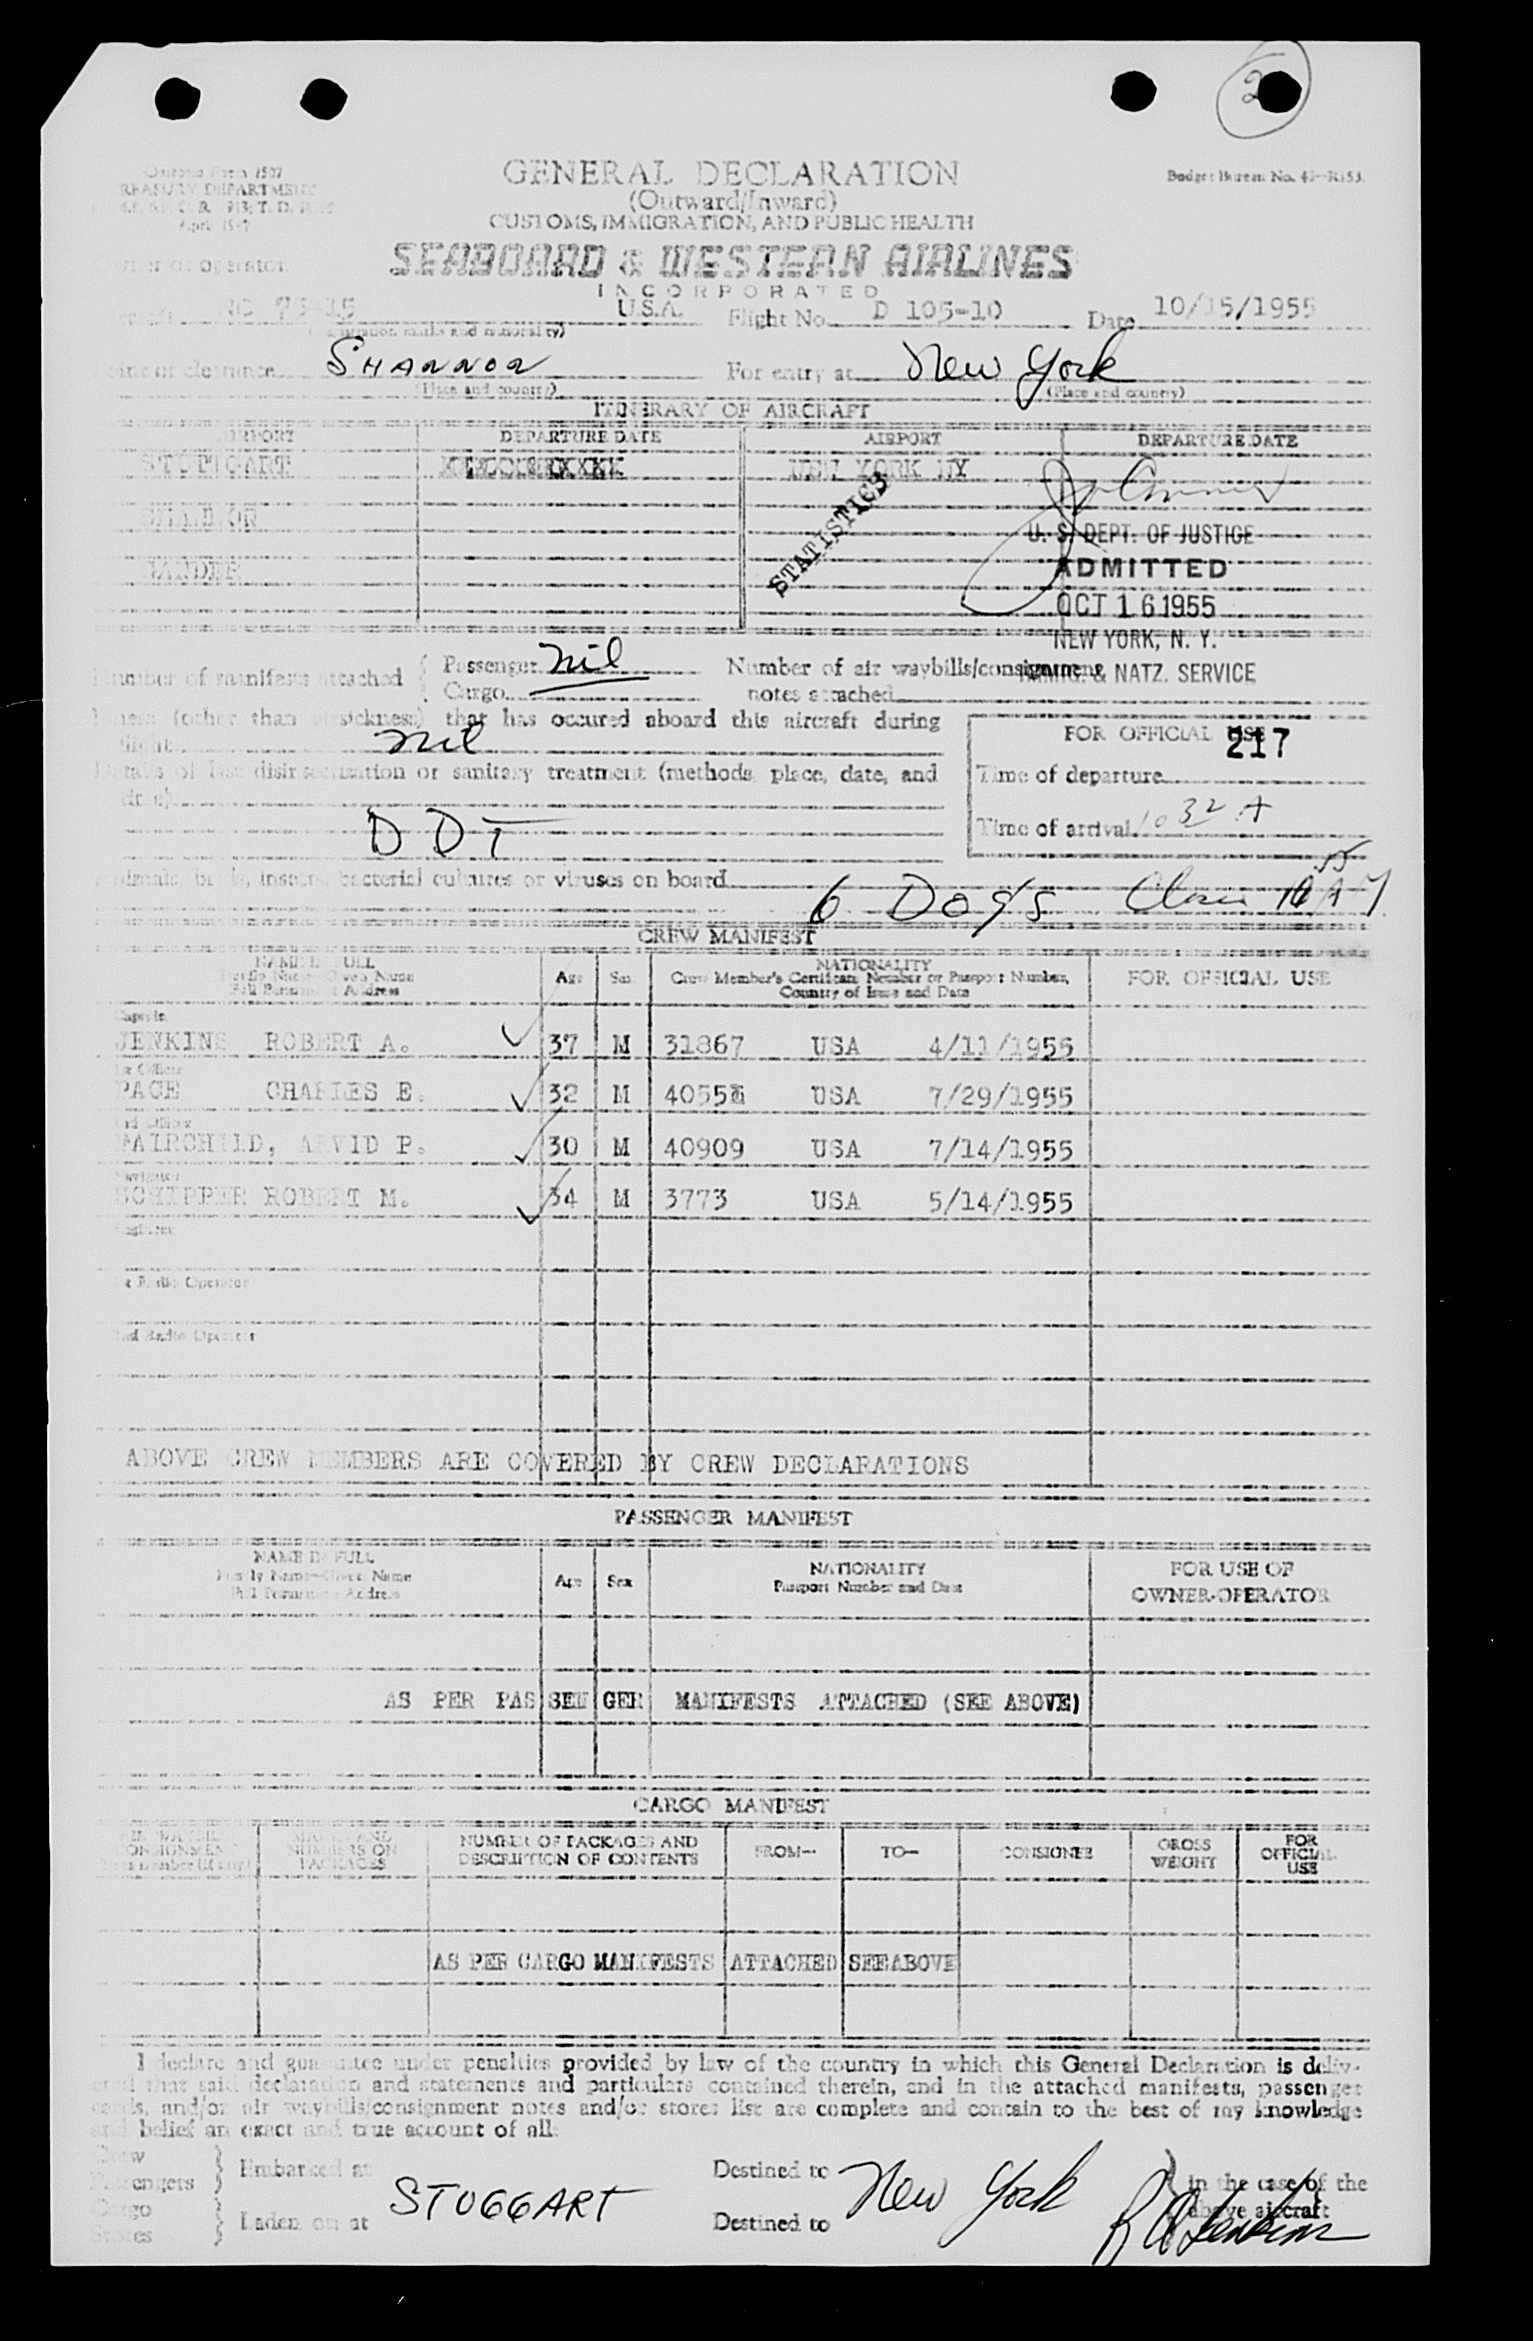 2
Customs Form 1507
TREASURY DEPARTMENT
April 1947
GENERAL DECLARATION
(Outward/Inward)
CUSTOMS, IMMIGRATION, AND PUBLIC HEALTH
Budget Bureau No.
SEABOARD & WESTERN AIRLINES
INCORPORATED
Owner or operator
U.S.A. Flight No. D 105-10 Date 10/15/1955
(Registration marks and nationality)
Point of clearance SHANNON For entry at New York
(Place and country) (Place and country)
ITINERARY OF AIRCRAFT
AIRPORT DEPARTURE DATE AIRPORT DEPARTURE DATE
STUTTGART NEW YORK NY
SHANNON
GANDER
STATISTICS
U. S. DEPT. OF JUSTICE
ADMITTED
OCT 16 1955
NEW YORK, N. Y.
IMMIG. & NATZ. SERVICE
Number of manifests attached { Passenger nil Number of air waybills/consignment
Cargo notes attached
Illness (other than airsickness) that has occured aboard this aircraft during
flight nil
FOR OFFICIAL USE
217
Details of last disinsectization or sanitary treatment (methods, place, date, and
time)
Time of departure
DDT
Time of arrival 10 32 A
Animals, birds, insects, bacterial cultures or viruses on board
6 Dogs
CREW MANIFEST
NAME IN FULL
Family Name—Given Name
Full Permanent Address
Age Sex NATIONALITY
Crew Member's Certificate Number or Passport Number,
Country of Issue and Date
FOR OFFICIAL USE
Captain
JENKINS ROBERT A. 37 M 31867 USA 4/11/1955
1st Officer
PAGE CHARLES E. 32 M USA 7/29/1955
2nd Officer
FAIRCHILD, ARVID P. 30 M 40909 USA 7/14/1955
Navigator
SCHIPPER ROBERT M. 34 M 3773 USA 5/14/1955
Engineer
1st Radio Operator
2nd Radio Operator
ABOVE CREW MEMBERS ARE COVERED BY CREW DECLARATIONS
PASSENGER MANIFEST
NAME IN FULL
Family Name—Given Name
Full Permanent Address
Age Sex NATIONALITY
Passport Number and Date
FOR USE OF
OWNER-OPERATOR
AS PER PASSENGER MANIFESTS ATTACHED (SEE ABOVE)
CARGO MANIFEST
AIR WAYBILL
CONSIGNMENT
Note number (if any)
MARKS AND
NUMBERS ON
PACKAGES
NUMBER OF PACKAGES AND
DESCRIPTION OF CONTENTS
FROM— TO— CONSIGNEE GROSS
WEIGHT
FOR
OFFICIAL
USE
AS PER CARGO MANIFESTS ATTACHED SEE ABOVE
I declare and guarantee under penalties provided by law of the country in which this General Declaration is deliv-
ered that said declaration and statements and particulars contained therein, and in the attached manifests, passenger
cards, and/or air waybills/consignment notes and/or stores list are complete and contain to the best of my knowledge
and belief an exact and true account of all:
Crew
Passengers } Embarked at Destined to New York } in the case of the
Cargo STUGGART above aircraft
Stores } Laden on at Destined to RA Jenkins